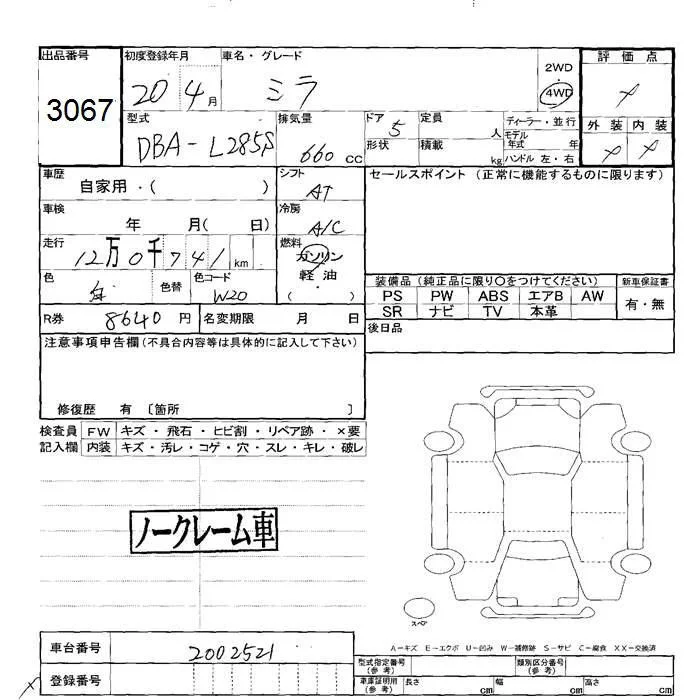 出品番号 初度登録年月 車名・グレード 2WD・4WD 評価点
3067 20 4月 ミラ ✗
型式 排気量 ドア 定員 ディーラー・並行 外装 内装
DBA-L285S 660cc 5 人 モデル年式 年 ✗ ✗
形状 積載 kg ハンドル 左・右
車歴 シフト セールスポイント (正常に機能するものに限ります)
自家用・( ) AT
車検 冷房
年 月( 日) A/C
走行 燃料
12万0千741km ガソリン
色 色替 色コード 軽油
W20 ( ・ )
装備品 (純正品に限り○をつけてください) 新車保証書
PS PW ABS エアB AW 有・無
SR ナビ TV 本革
R券 8640円 名変期限 月 日
後日品
注意事項申告欄(不具合内容等は具体的に記入して下さい)
修復歴 有 〔箇所 〕
検査員 FW キズ・飛石・ヒビ割・リペア跡・×要
記入欄 内装 キズ・汚レ・コゲ・穴・スレ・キレ・破レ
ノークレーム車
スペア
A−キズ E−エクボ U−凹み W−補修跡 S−サビ C−腐食 XX−交換済
車台番号 2002521
型式指定番号(参考) 類別区分番号(参考)
登録番号
車庫証明用(参考) 長さ cm 幅 cm 高さ cm